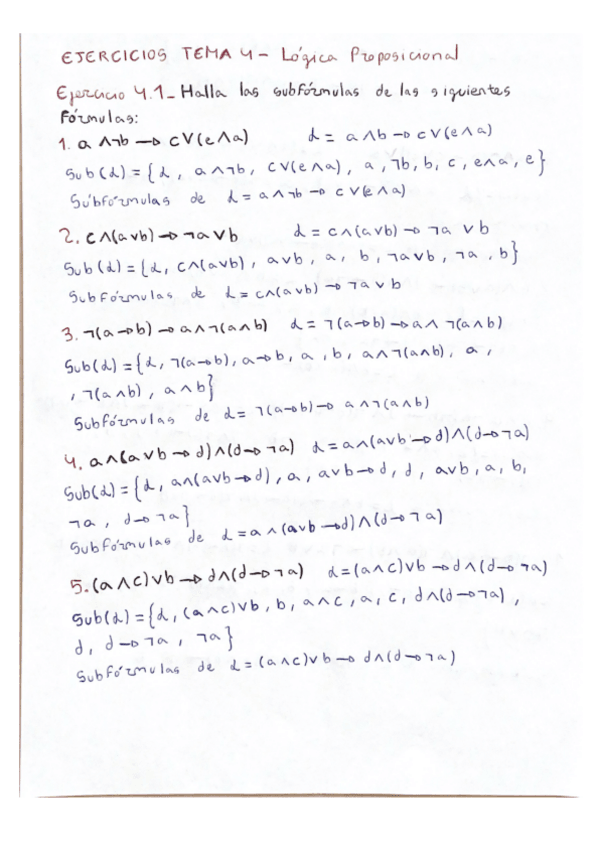 EJERCICIOS TEMA 4 - Lógica Proposicional
Ejercicio 4.1 - Halla las subfórmulas de las siguientes
fórmulas:
1. a ∧ ¬b → c ∨ (e ∧ a) α = a ∧ b → c ∨ (e ∧ a)
Sub(α) = {α, a ∧ ¬b, c ∨ (e ∧ a), a, ¬b, b, c, e ∧ a, e}
Subfórmulas de α = a ∧ ¬b → c ∨ (e ∧ a)
2. c ∧ (a ∨ b) → ¬a ∨ b α = c ∧ (a ∨ b) → ¬a ∨ b
Sub(α) = {α, c ∧ (a ∨ b), a ∨ b, a, b, ¬a ∨ b, ¬a, b}
Subfórmulas de α = c ∧ (a ∨ b) → ¬a ∨ b
3. ¬(a → b) → a ∧ ¬(a ∧ b) α = ¬(a → b) → a ∧ ¬(a ∧ b)
Sub(α) = {α, ¬(a → b), a → b, a, b, a ∧ ¬(a ∧ b), a,
, ¬(a ∧ b), a ∧ b}
Subfórmulas de α = ¬(a → b) → a ∧ ¬(a ∧ b)
4. a ∧ (a ∨ b → d) ∧ (d → ¬a) α = a ∧ (a ∨ b → d) ∧ (d → ¬a)
Sub(α) = {α, a ∧ (a ∨ b → d), a, a ∨ b → d, d, a ∨ b, a, b,
¬a, d → ¬a}
Subfórmulas de α = a ∧ (a ∨ b → d) ∧ (d → ¬a)
5. (a ∧ c) ∨ b → d ∧ (d → ¬a) α = (a ∧ c) ∨ b → d ∧ (d → ¬a)
Sub(α) = {α, (a ∧ c) ∨ b, b, a ∧ c, a, c, d ∧ (d → ¬a),
d, d → ¬a, ¬a}
Subfórmulas de α = (a ∧ c) ∨ b → d ∧ (d → ¬a)